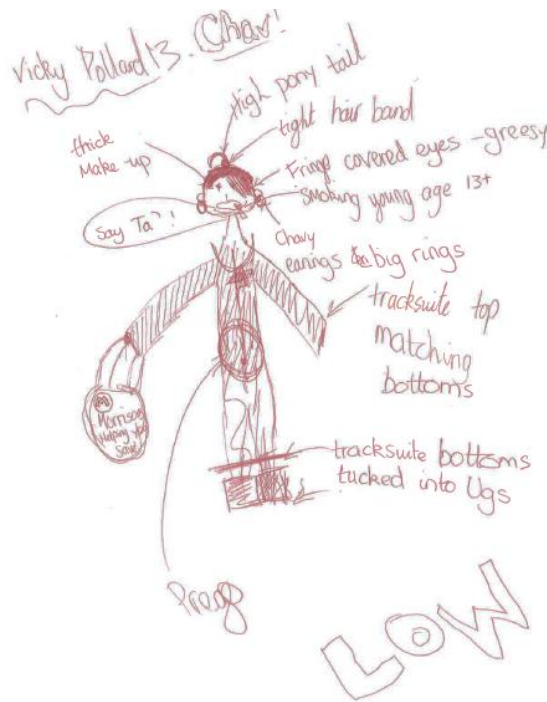 Vicky Pollard 13. Chav!
High pony tail
tight hair band
thick
Make-up
Fringe covered eyes - greesy
Smoking young age 13+
Say Ta"!
Chavy
earings big rings
tracksuite top
matching
bottoms
Morrisons
Helping you
Save
tracksuite bottoms
tucked into Ugs
Preg
LOW